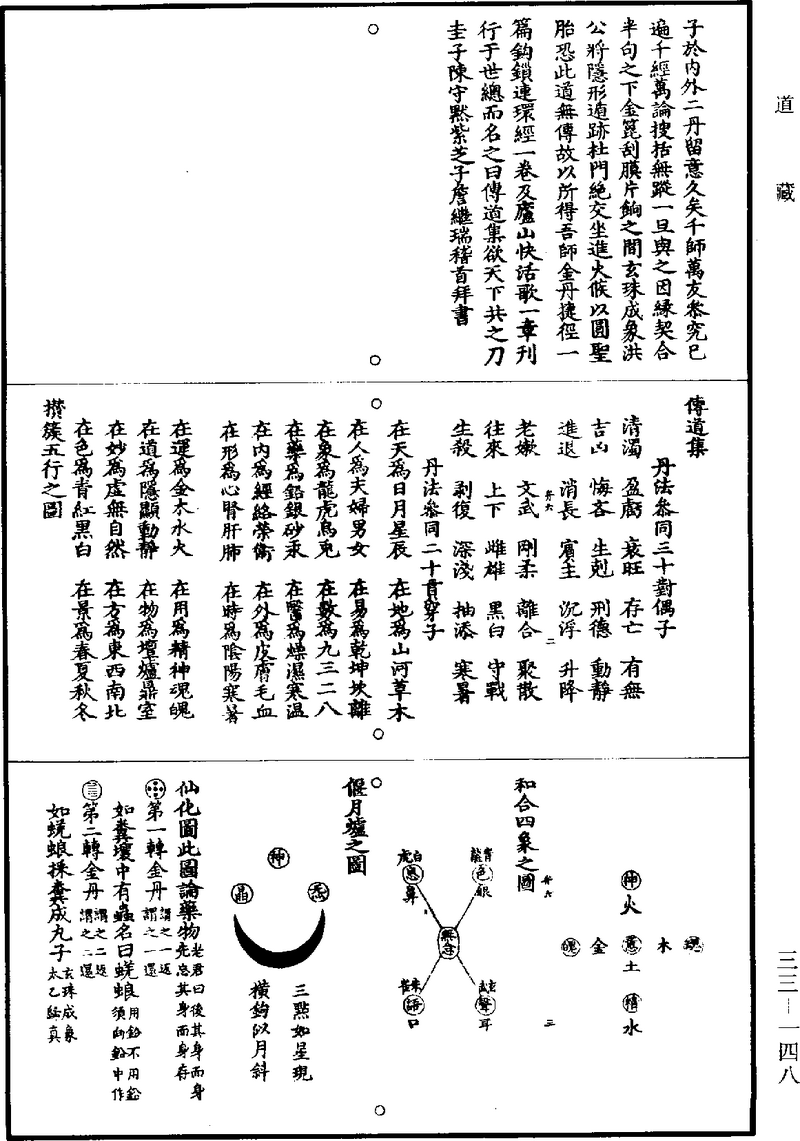 道藏
子於內外二丹留意久矣千師萬友叅究已
遍千經萬論搜括無蹤一旦與之因緣契合
半句之下金篦刮膜片餉之間玄珠成象洪
公將隱形遁跡杜門絕交坐進火候以圓聖
胎恐此道無傳故以所得吾師金丹捷徑一
篇鈎鎖連環經一卷及廬山快活歌一章刊
行于世總而名之曰傳道集欲天下共之刀
圭子陳守默紫芝子詹繼瑞稽首拜書
傳道集
丹法叅同三十對偶子
清濁 盈虧 衰旺 存亡 有無
吉凶 悔吝 生剋 刑德 動靜
進退 消長 賓主 沉浮 升降
弁六 二
老嫩 文武 剛柔 離合 聚散
往來 上下 雌雄 黑白 守戰
生殺 剥復 深淺 抽添 寒暑
丹法叅同二十貫穿子
在天爲日月星辰 在地爲山河草木
在人爲夫婦男女 在易爲乾坤坎離
在象爲龍虎烏兔 在數爲九三二八
在藥爲鉛銀砂汞 在醫爲燥濕寒温
在內爲經絡榮衛 在外爲皮膚毛血
在形爲心腎肝肺 在時爲陰陽寒暑
在運爲金木水火 在用爲精神魂魄
在道爲隱顯動靜 在物爲壇爐鼎室
在妙爲虛無自然 在方爲東西南北
在色爲青紅黑白 在景爲春夏秋冬
攅簇五行之圖
神 火
魂 木
意 土
金 魄
精 水
和合四象之圖
弁六 三
青龍 色 銀
白虎 息 鼻
玄武 聲 耳
朱雀 語 口
偃月爐之圖
神
炁
晶
三點如星現
橫鈎似月斜
仙化圖此圖論藥物老君曰後其身而身先忘其身而身存
第一轉金丹謂之一返謂之一還
如糞壤中有蟲名曰蜣蜋用鉛不用鉛須向鉛中作
第二轉金丹謂之二返謂之二還
如蜣蜋採糞成丸子玄珠成象太乙歸真
三三—一四八